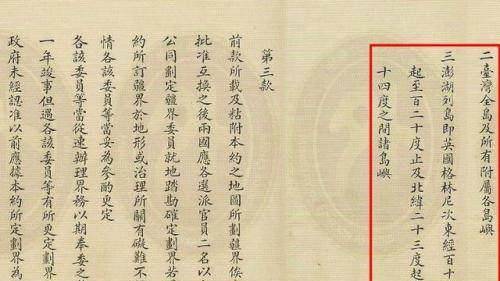 二臺灣全島及所有附屬各島嶼
三澎湖列島即英國格林尼次東經百十
起至百二十度止及北緯二十三度起
十四度之間諸島嶼
第三款
前款所載及粘附本約之地圖所劃疆界俟
批准互換之後兩國應各選派官員二名以
公同劃定疆界委員就地踏勘確定劃界若
約所訂疆界於地形或治理所關有礙難不
情各該委員等當妥為參酌更定
各該委員等當從速辦理界務以期奉委之
一年竣事但遇各該委員等有所更定劃界
政府未經認准以前應據本約所定劃界為